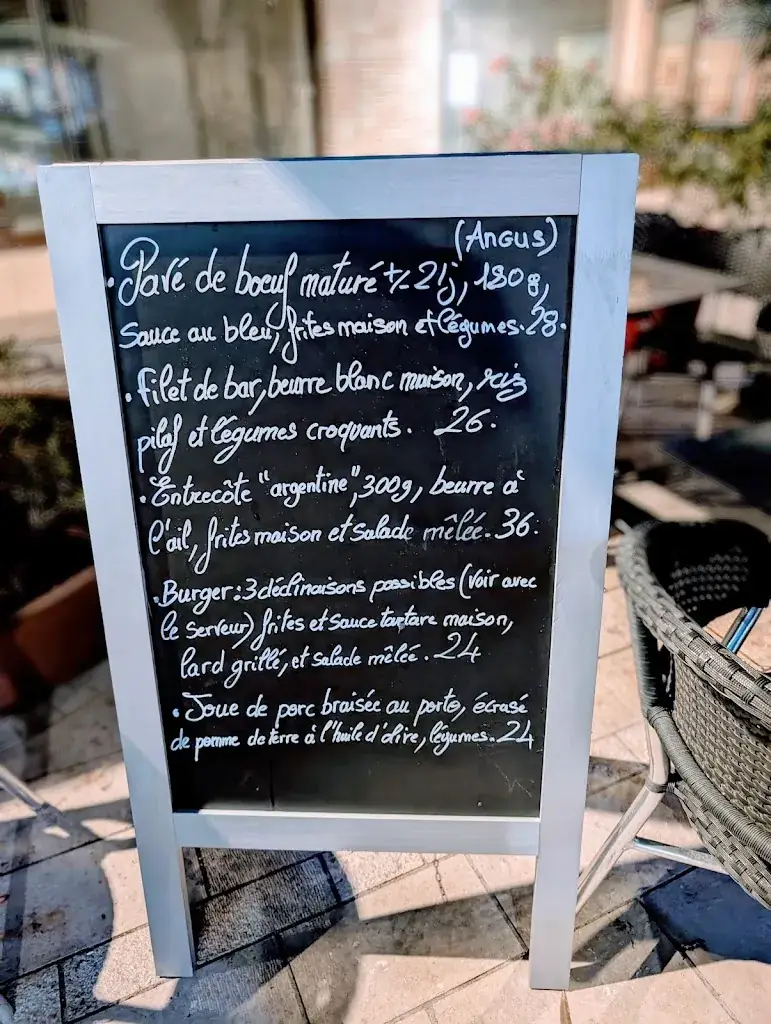 (Angus)
• Pavé de boeuf maturé +/- 21j, 180g,
sauce au bleu, frites maison et légumes. 28.
• Filet de bar, beurre blanc maison, riz
pilaf et légumes croquants. 26.
• Entrecôte "argentine", 300g, beurre à
l'ail, frites maison et salade mêlée. 36.
• Burger : 3 déclinaisons possibles (voir avec
le serveur) frites et sauce tartare maison,
lard grillé, et salade mêlée. 24
• Joue de porc braisée au porto, écrasé
de pomme de terre à l'huile d'olive, légumes. 24